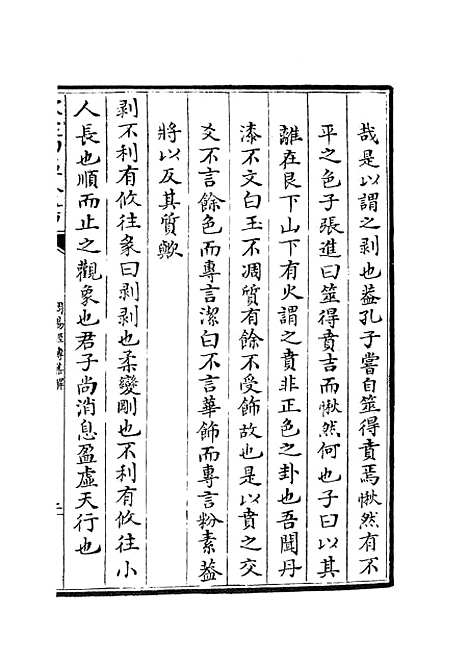 哉是以謂之剥也葢孔子嘗自筮得賁焉愀然有不
平之色子張進曰筮得賁吉而愀然何也子曰以其
離在艮下山下有火謂之賁非正色之卦也吾聞丹
漆不文白玉不凋質有餘不受飾故也是以賁之交
爻不言餘色而專言潔白不言華飾而專言粉素葢
將以反其質歟
剥不利有攸往彖曰剥剥也柔變剛也不利有攸往小
人長也順而止之觀象也君子尚消息盈虚天行也